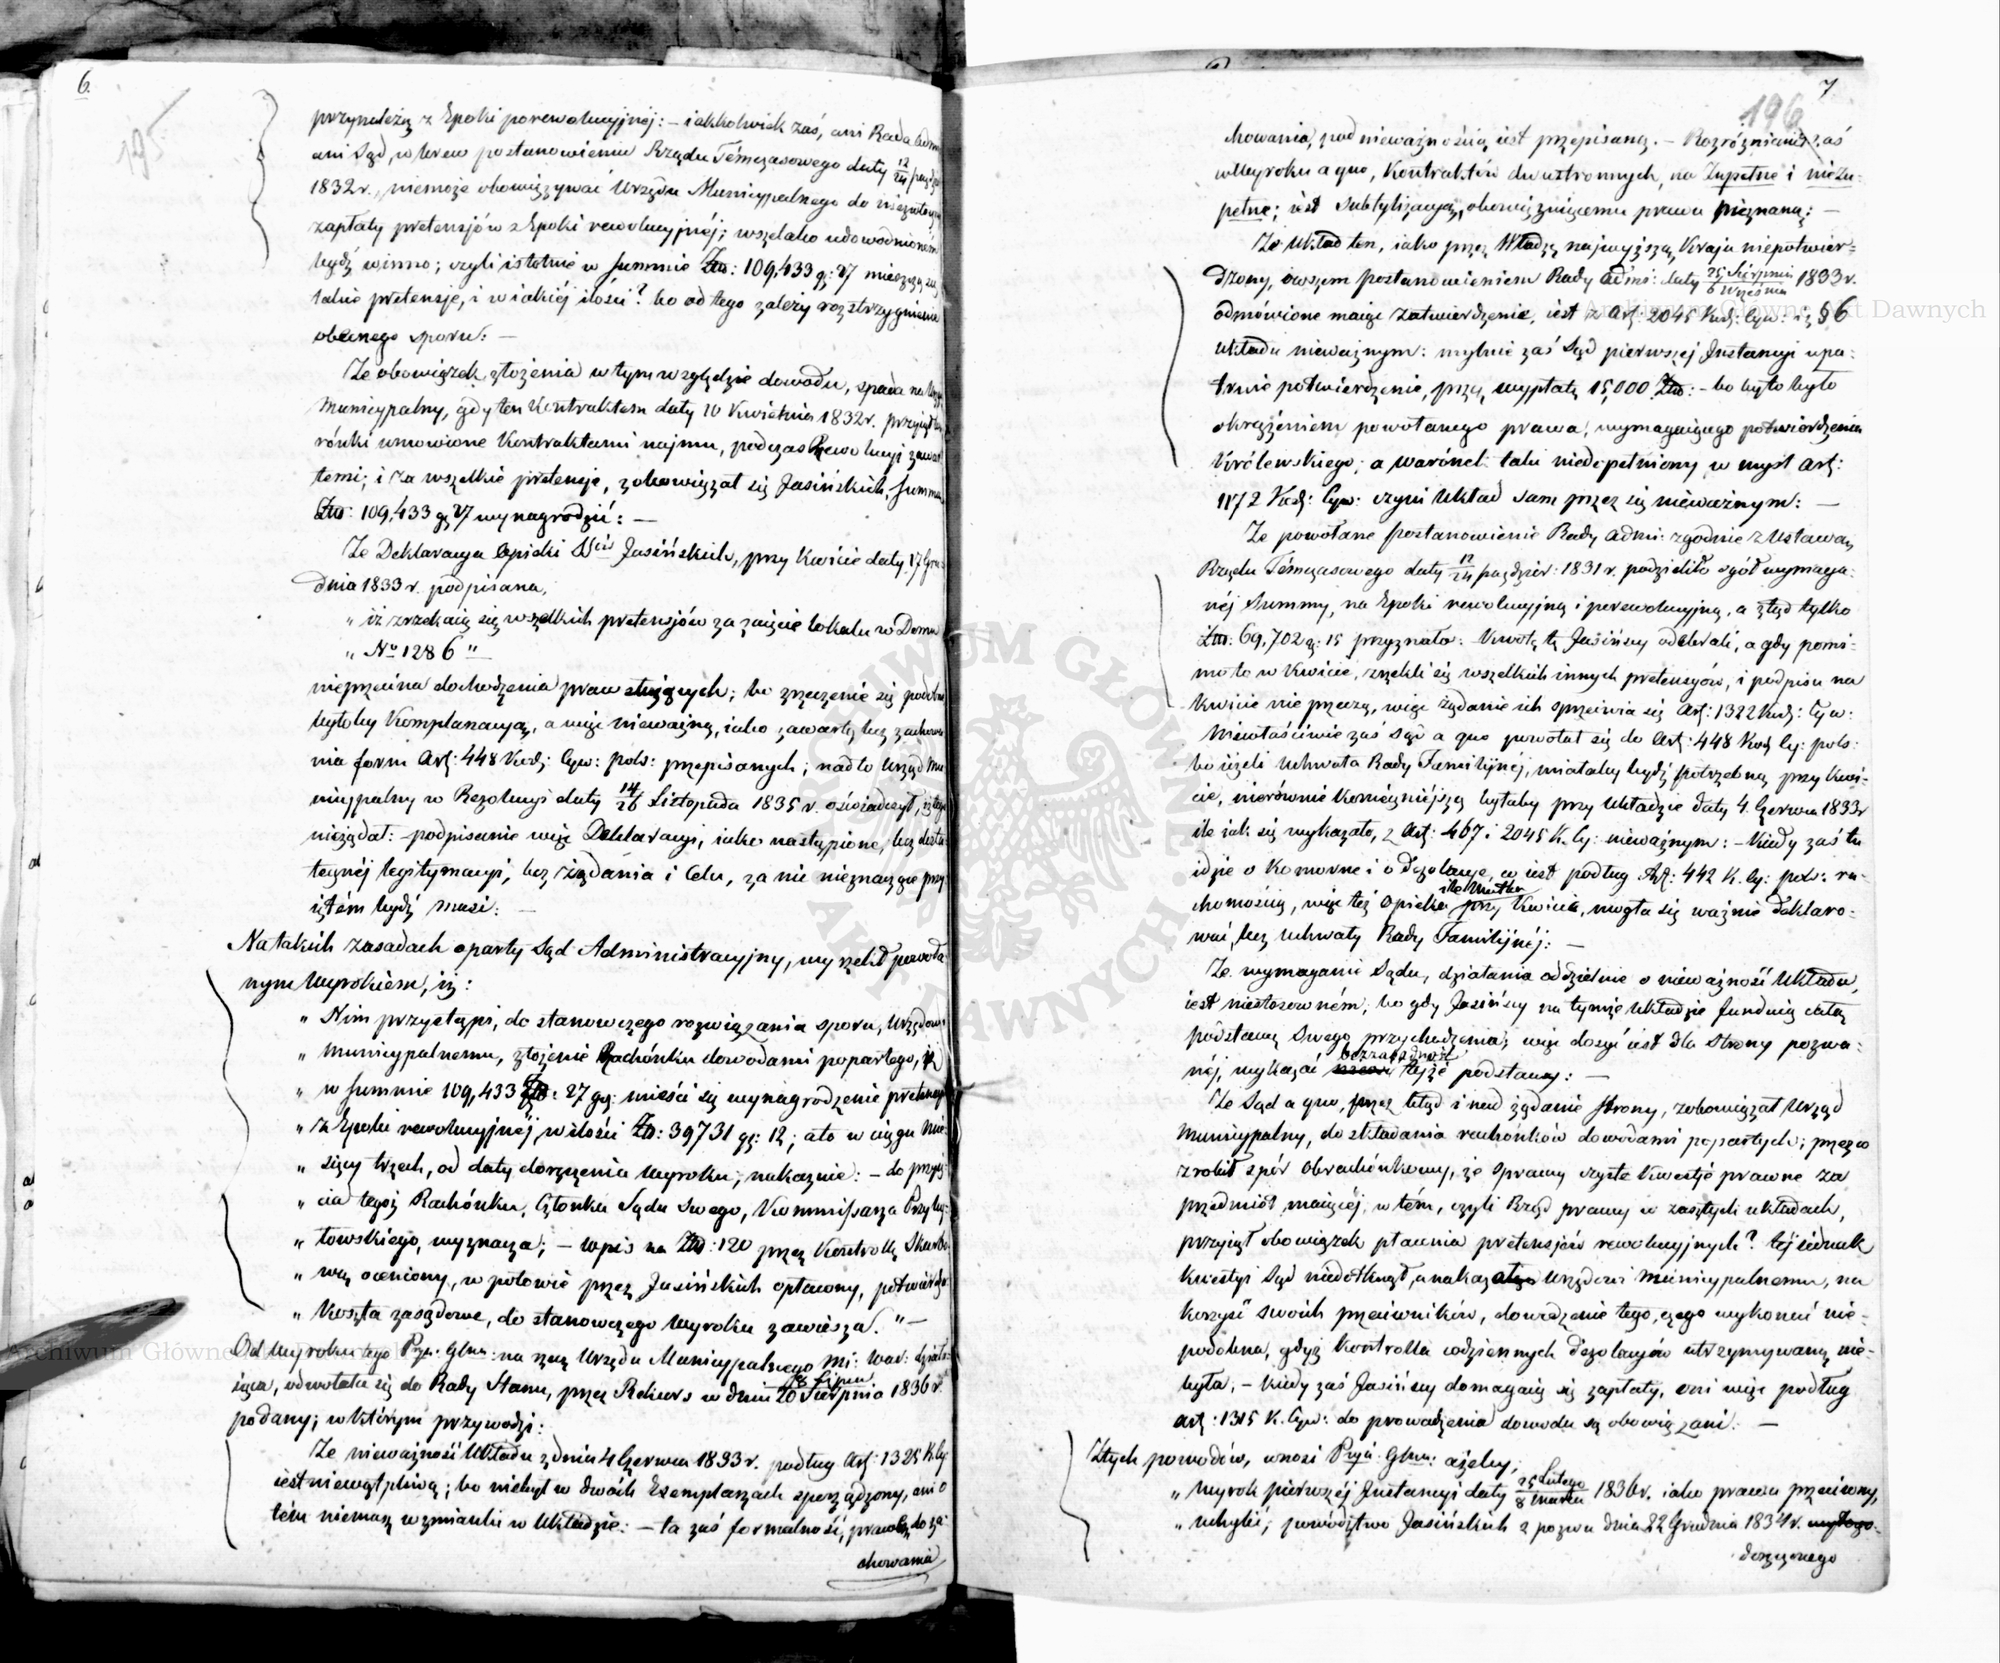 6.
195
przynależą z Epoki porewolucyjnéj: – iakkolwiek zaś, ani Rada Adm:
ani Sąd, wbrew postanowieniu Rządu Témczasowego daty 12/24 paźdz:
1832 r., niemoże obowiązywać Urzędu Municypalnego do
zapłaty pretensjów z Epoki rewolucyjnéj; wszelako udowodnioném
bydź winno; czyli istotnie w Summie Złtp: 109,433 g: 27 mieszczą się
takie pretensje, i w iakiéj ilości? bo od tego zależy rozstrzygnienie
obecnego sporu: –
Że obowiązek złożenia w tym względzie dowodu, spada na Urząd
Municypalny, gdy ten Kontraktem daty 10 Kwietnia 1832 r. przyiął wa-
rónki umowione Kontraktami najmu, podczas Rewolucji zawar-
temi; i za wszelkie pretensje, zobowiązał się Jasińskich, Summą
Złtp: 109,433 g 27 wynagrodzić: –
Że Deklaracya Opieki SSów Jasińskich, przy Kwicie daty 17 Gru-
dnia 1833 r. podpisana,
„ iż zrzekaią się wszelkich pretensjów za zajęcie lokalu w Domu
„ No 1286 "
nieprzecina dochodzenia praw służących; bo zrzeczenie się podobne
byłoby Komplanacyą, a więc nieważną, iako zawartą bez zachowa-
nia form Art: 448 Kod: Cyw: pols: przepisanych; nadto Urząd Mu-
nicypalny w Rezolucyi daty 14/26 Listopada 1835 r. oświadczył, iż tego
nieżądał: – podpisanie więc Deklaracyi, iako nastąpione, bez dosta-
tecznéj legitymacyi, bez żądania i Celu, za nic nieznaczące przy-
iętém bydź musi: –
Na takich zasadach oparty Sąd Administracyjny, wyrzekł powoła-
nym Wyrokiem, iż:
„ Nim przystąpi, do stanowczego rozwiązania sporu, Urzędowi
„ Municypalnemu, złożenie Rachónku dowodami popartego, iż
„ w Summie 109,433 Złtp: 27 gr: mieści się wynagrodzenie pretensyi
„ z Epoki rewolucyjnéj w ilości Złtp: 39731 gr: 12; a to w ciągu Mie-
„ sięcy trzech, od daty doręczenia Wyroku; nakazuie: – do przyię-
„ cia tegoż Rachónku, Członka Sądu swego, Kommissarza Przyby-
„ towskiego, wyznacza; – Wpis na Złtp: 120 przez Kontrollę Skarbo-
„ wą oceniony, w połowie przez Jasińskich opłacony, potwierdza
„ Koszta zasądowe, do stanowczego Wyroku zawiesza. " –
Od Wyroku tego Prgu: Glnu: na rzecz Urzędu Municypalnego Mi: War: działa-
iąca, odwołała się do Rady Stanu, przez Rekurs w dniu 18 Lipca / 20 Sierpnia 1836 r.
podany; w którym przywodzi:
Że nieważność Układu z dnia 4 Czerwca 1833 r. podług Art: 1325 K. Cy:
iest niewątpliwą; bo niebył w dwóch Exemplarzach sporządzony, ani o
tém niemasz wzmianki w Układzie: – ta zaś formalność, prawo do za-
chowania
7
196
chowania, pod nieważnością iest przepisaną. – Rozróżnianie zaś
w Wyroku a quo, Kontraktów dwustronnych, na Zupełne i niezu-
pełne; iest Subtylizacyą, obowiązuiącemu prawu nieznaną: –
Że Układ ten, iako przez Władzę najwyższą Kraju niepotwier-
dzony, owszem postanowieniem Rady Admi: daty 25 Sierpnia / 6 Września 1833 r.
odmówione maiąc zatwierdzenie, iest z Art: 2045 Kod: Cyw: i z § 6
Układu nieważnym: mylnie zaś Sąd pierwszej Instancyi upa-
truie potwierdzenie, przez wypłatę 15,000 Złtp: – bo to byłoby
okrążeniem powołanego prawa, wymagaiącego potwierdzenia
Królewskiego; a warónek taki niedopełniony w myśl Art:
1172 Kod: Cyw: czyni Układ sam przez się nieważnym: –
Że powołane postanowienie Rady Admi: zgodnie z Ustawą
Rządu Témczasowego daty 12/24 paździer: 1831 r. podzieliło ogół wymaga-
néj Summy, na Epoki rewolucyjną i porewolucyjną, a ztąd tylko
Złtp. 69,702 g: 15 przyznało: Kwotę tę Jasińscy odebrali, a gdy pomi-
mo to w Kwicie, zrzekli się wszelkich innych pretensyów, i podpisu na
Kwicie nie przeczą, więc żądanie ich sprzeciwia się Art: 1322 Kod: Cyw:
Niewłaściwie zaś Sąd a quo powołał się do Art: 448 Kod Cy: pols:
bo ieżeli Uchwała Rady Familijnéj, miałaby bydź potrzebną przy Kwi-
cie, nierównie konieczniejszą byłaby przy Układzie daty 4 Czerwca 1833 r
ile iak się wykazało, z Art: 467 i 2045 K. Cy: nieważnym: – Kiedy zaś tu
idzie o Komorne i o dezolacye, co iest podług Art: 442 K. Cy: pols: ru-
chomością, więc też Opieka przy Kwicie, mogła się ważnie deklaro-
wać, bez Uchwały Rady Familijnéj: –
Że wymaganie Sądu, działania oddzielnie o nieważność Układu,
iest niestosowném; bo gdy Jasińscy na tymże Układzie funduią całą
podstawę swego przychodzenia; więc dosyć iest dla Strony pozwa-
néj, wykazać bezzasadność tejże podstawy: –
Że Sąd a quo, przez błąd i nad żądanie Strony, zobowiązał Urząd
Municypalny, do składania rachónków dowodami popartych; przez co
zrobił spór Obrachónkowy, ze Sprawy czyste Kwestje prawne za
przedmiot maiącéj, w tém, czyli Rząd prawy w zaszłych układach,
przyiął obowiązek płacenia pretensjów rewolucyjnych? téj iednak
Kwestyi Sąd niedotknął, a nakazał Urzędowi Municypalnemu, na
korzyść swoich przeciwników, dowodzenie tego, czego wykonać nie-
podobna, gdyż Kontrolla codziennych dezolacyów utrzymywaną nie-
była, – Kiedy zaś Jasińscy domagaią się zapłaty, oni więc podług
Art: 1315 K. Cyw: do prowadzenia dowodu są obowiązani: –
Z tych powodów, wnosi Prgu: Glnu: ażeby,
„ Wyrok pierwszéj Instancyi daty 25 Lutego / 8 Marca 1836 r. iako prawu przeciwny,
„ uchylić; powództwo Jasińskich z pozwu dnia 22 Grudnia 1834 r.
doręczonego